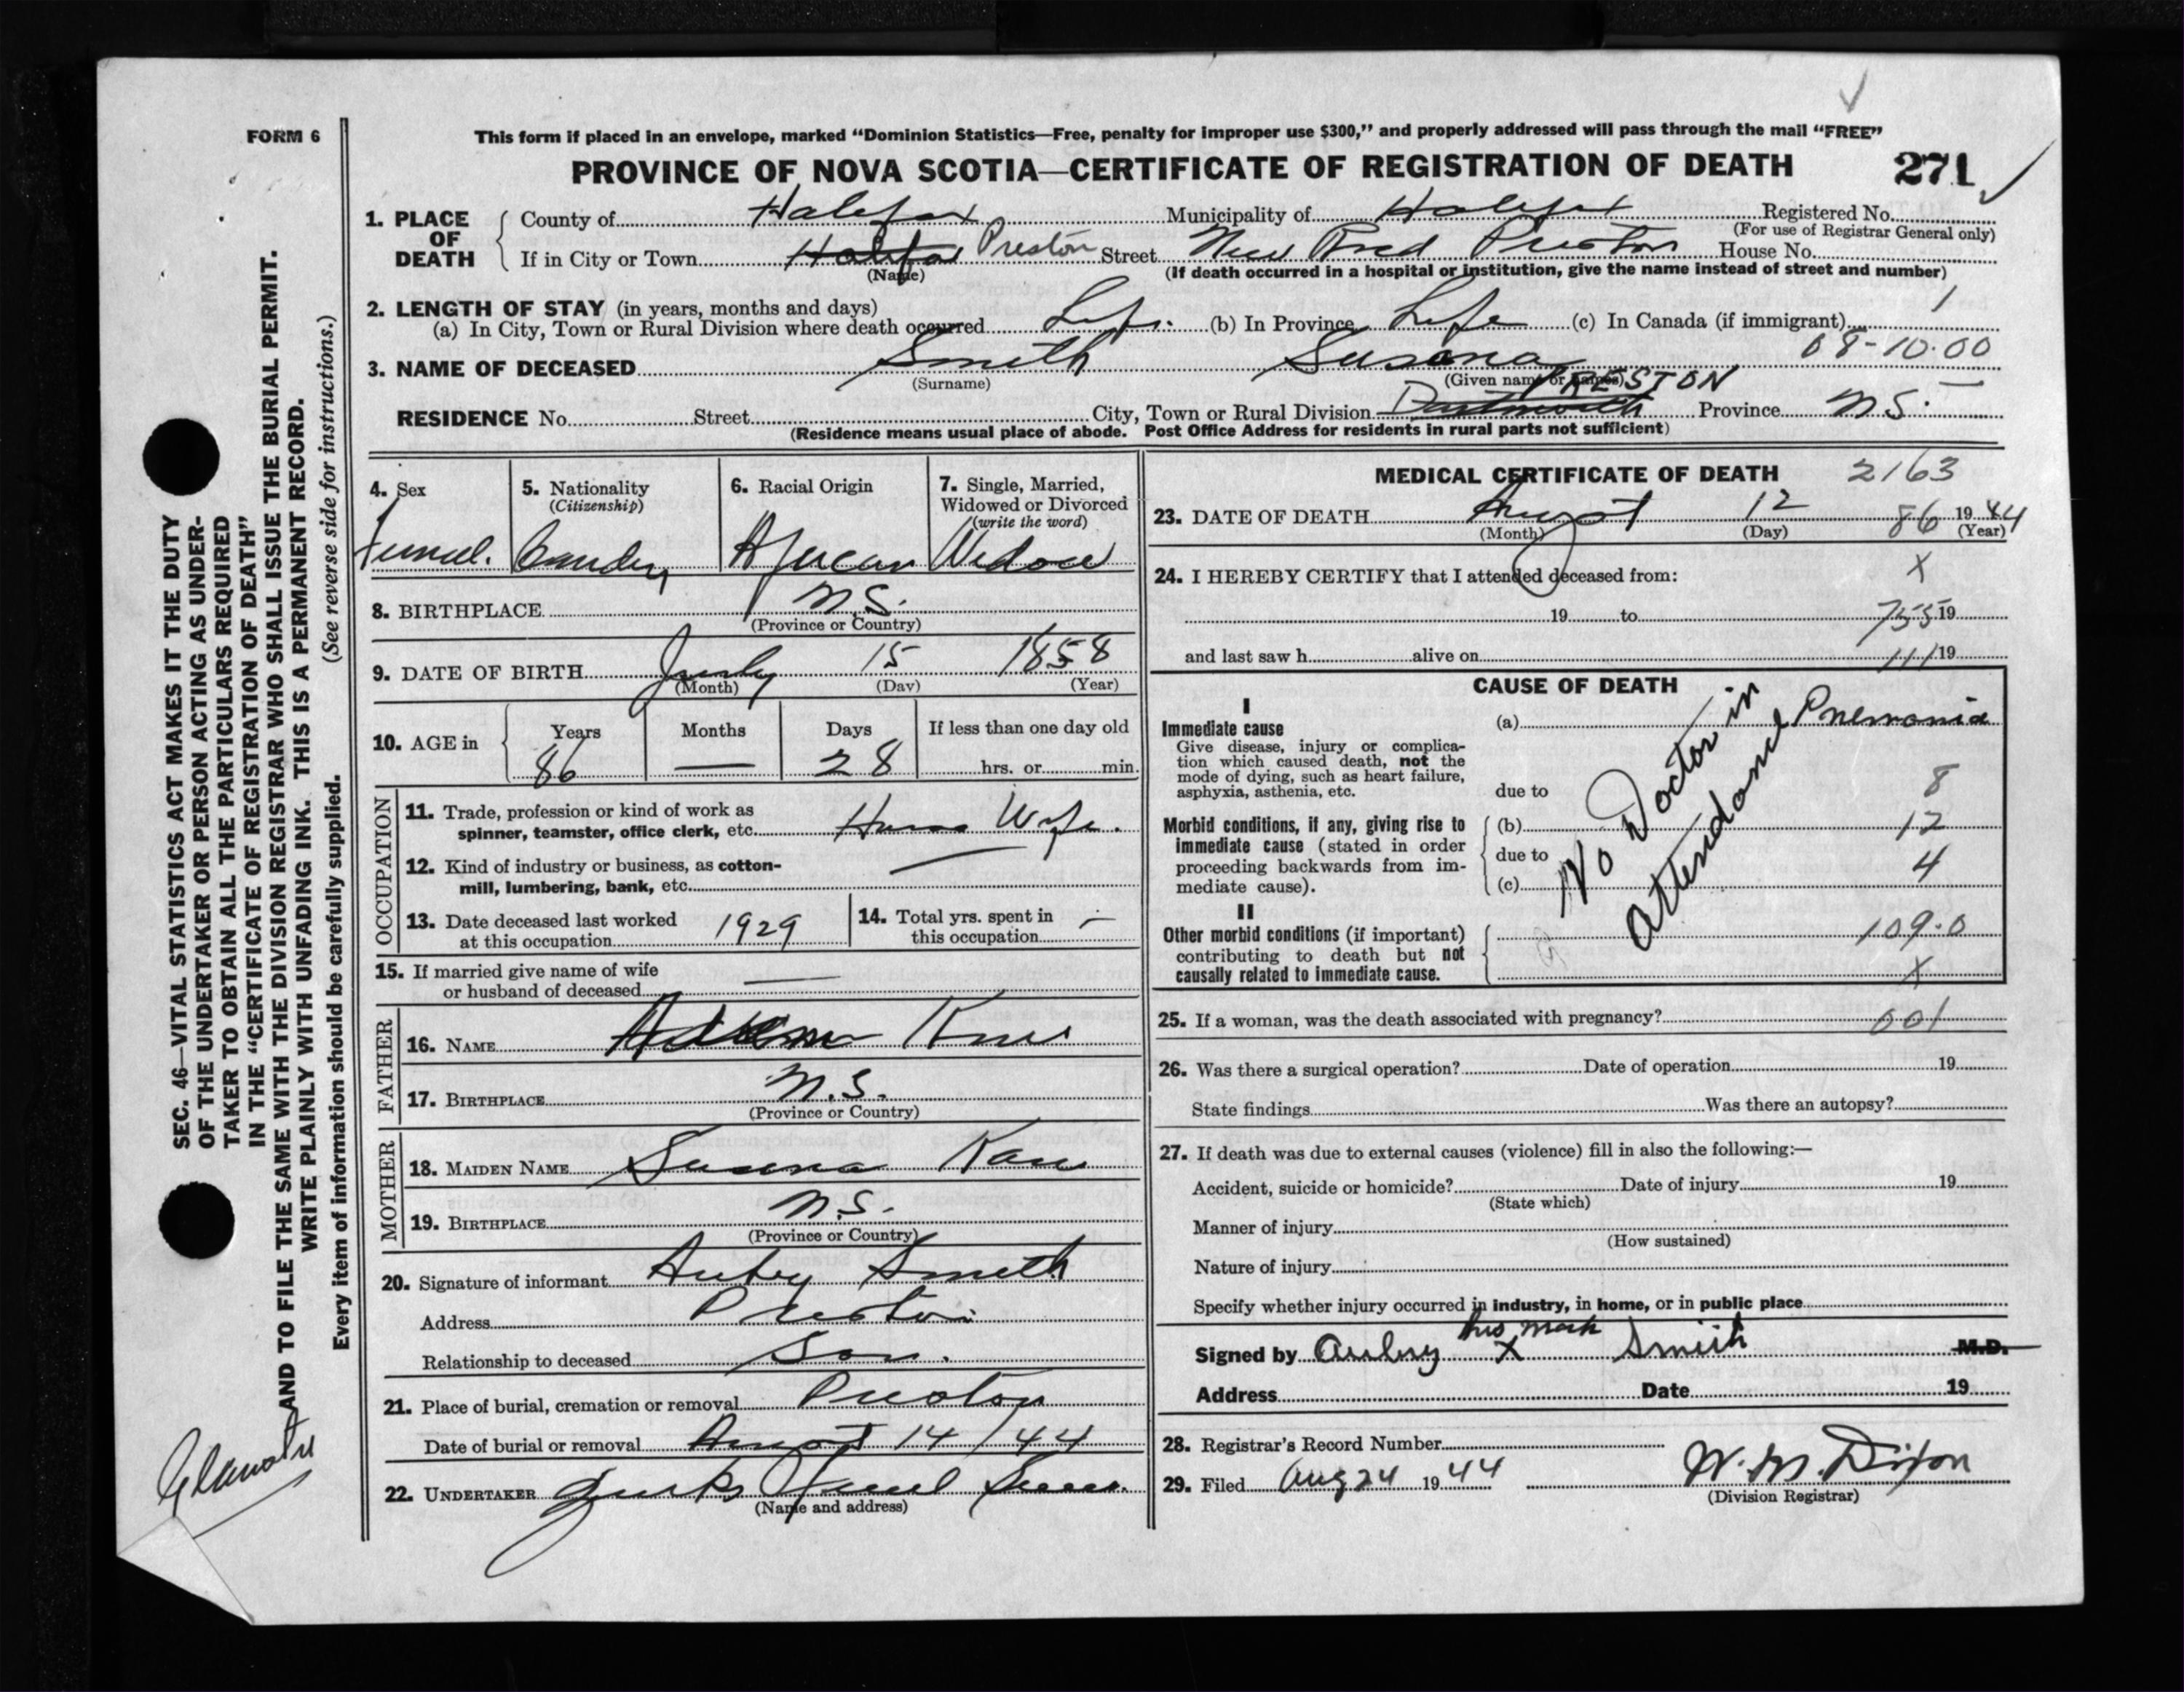 FORM 6
This form if placed in an envelope, marked “Dominion Statistics—Free, penalty for improper use $300,” and properly addressed will pass through the mail “FREE”
PROVINCE OF NOVA SCOTIA—CERTIFICATE OF REGISTRATION OF DEATH 271
1. PLACE OF DEATH
County of Halifax Municipality of Halifax Registered No.
(For use of Registrar General only)
If in City or Town Halifax Preston Street New Road Preston House No.
(Name) (If death occurred in a hospital or institution, give the name instead of street and number)
2. LENGTH OF STAY (in years, months and days)
(a) In City, Town or Rural Division where death occurred Life. (b) In Province Life (c) In Canada (if immigrant) 1
08-10.00
3. NAME OF DECEASED Smith Susana
(Surname) (Given name or names)
PRESTON
RESIDENCE No. Street City, Town or Rural Division Dartmouth Province N.S.
(Residence means usual place of abode. Post Office Address for residents in rural parts not sufficient)
4. Sex
5. Nationality (Citizenship)
6. Racial Origin
7. Single, Married, Widowed or Divorced (write the word)
African Widow
8. BIRTHPLACE N.S.
(Province or Country)
9. DATE OF BIRTH July 15 1858
(Month) (Day) (Year)
10. AGE in Years Months Days If less than one day old
86 — 28 hrs. or min.
OCCUPATION
11. Trade, profession or kind of work as
spinner, teamster, office clerk, etc. House Wife.
12. Kind of industry or business, as cotton-
mill, lumbering, bank, etc. —
13. Date deceased last worked
at this occupation 1929
14. Total yrs. spent in
this occupation —
15. If married give name of wife
or husband of deceased —
FATHER
16. NAME
17. BIRTHPLACE N.S.
(Province or Country)
MOTHER
18. MAIDEN NAME Susana
19. BIRTHPLACE N.S.
(Province or Country)
20. Signature of informant Aubry Smith
Address Preston
Relationship to deceased Son.
21. Place of burial, cremation or removal Preston
Date of burial or removal August 14/44
22. UNDERTAKER
(Name and address)
MEDICAL CERTIFICATE OF DEATH 2163
23. DATE OF DEATH August 12 86 1944
(Month) (Day) (Year)
24. I HEREBY CERTIFY that I attended deceased from: X
19 to 755 19
and last saw h alive on 111 19
CAUSE OF DEATH
I
Immediate cause
Give disease, injury or complica-
tion which caused death, not the
mode of dying, such as heart failure,
asphyxia, asthenia, etc.
(a) Pnemonia
due to 8
Morbid conditions, if any, giving rise to
immediate cause (stated in order
proceeding backwards from im-
mediate cause).
(b) 12
due to 4
(c)
No Doctor in
attendance
II
Other morbid conditions (if important)
contributing to death but not
causally related to immediate cause.
109.0
X
25. If a woman, was the death associated with pregnancy? 001
26. Was there a surgical operation? Date of operation 19
State findings Was there an autopsy?
27. If death was due to external causes (violence) fill in also the following:—
Accident, suicide or homicide? Date of injury 19
(State which)
Manner of injury
(How sustained)
Nature of injury
Specify whether injury occurred in industry, in home, or in public place
his mark
Signed by Aubry X Smith M.D.
Address Date 19
28. Registrar's Record Number
29. Filed Aug 24 1944 W. M. Dixon
(Division Registrar)
SEC. 46—VITAL STATISTICS ACT MAKES IT THE DUTY
OF THE UNDERTAKER OR PERSON ACTING AS UNDER-
TAKER TO OBTAIN ALL THE PARTICULARS REQUIRED
IN THE “CERTIFICATE OF REGISTRATION OF DEATH”
AND TO FILE THE SAME WITH THE DIVISION REGISTRAR WHO SHALL ISSUE THE BURIAL PERMIT.
WRITE PLAINLY WITH UNFADING INK. THIS IS A PERMANENT RECORD.
Every item of information should be carefully supplied. (See reverse side for instructions.)